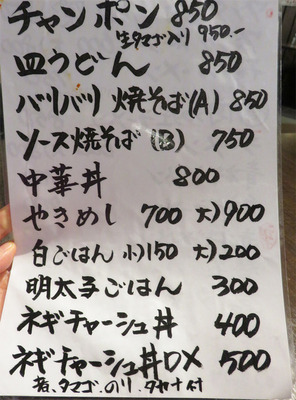 チャンポン 850
生タマゴ入り 950.-
皿うどん 850
バリバリ焼そば(A) 850
ソース焼そば(B) 750
中華丼 800
やきめし 700 大)900
白ごはん 小)150 大)200
明太子ごはん 300
ネギチャーシュ丼 400
ネギチャーシュ丼DX 500
煮タマゴ、のり、タカナ付